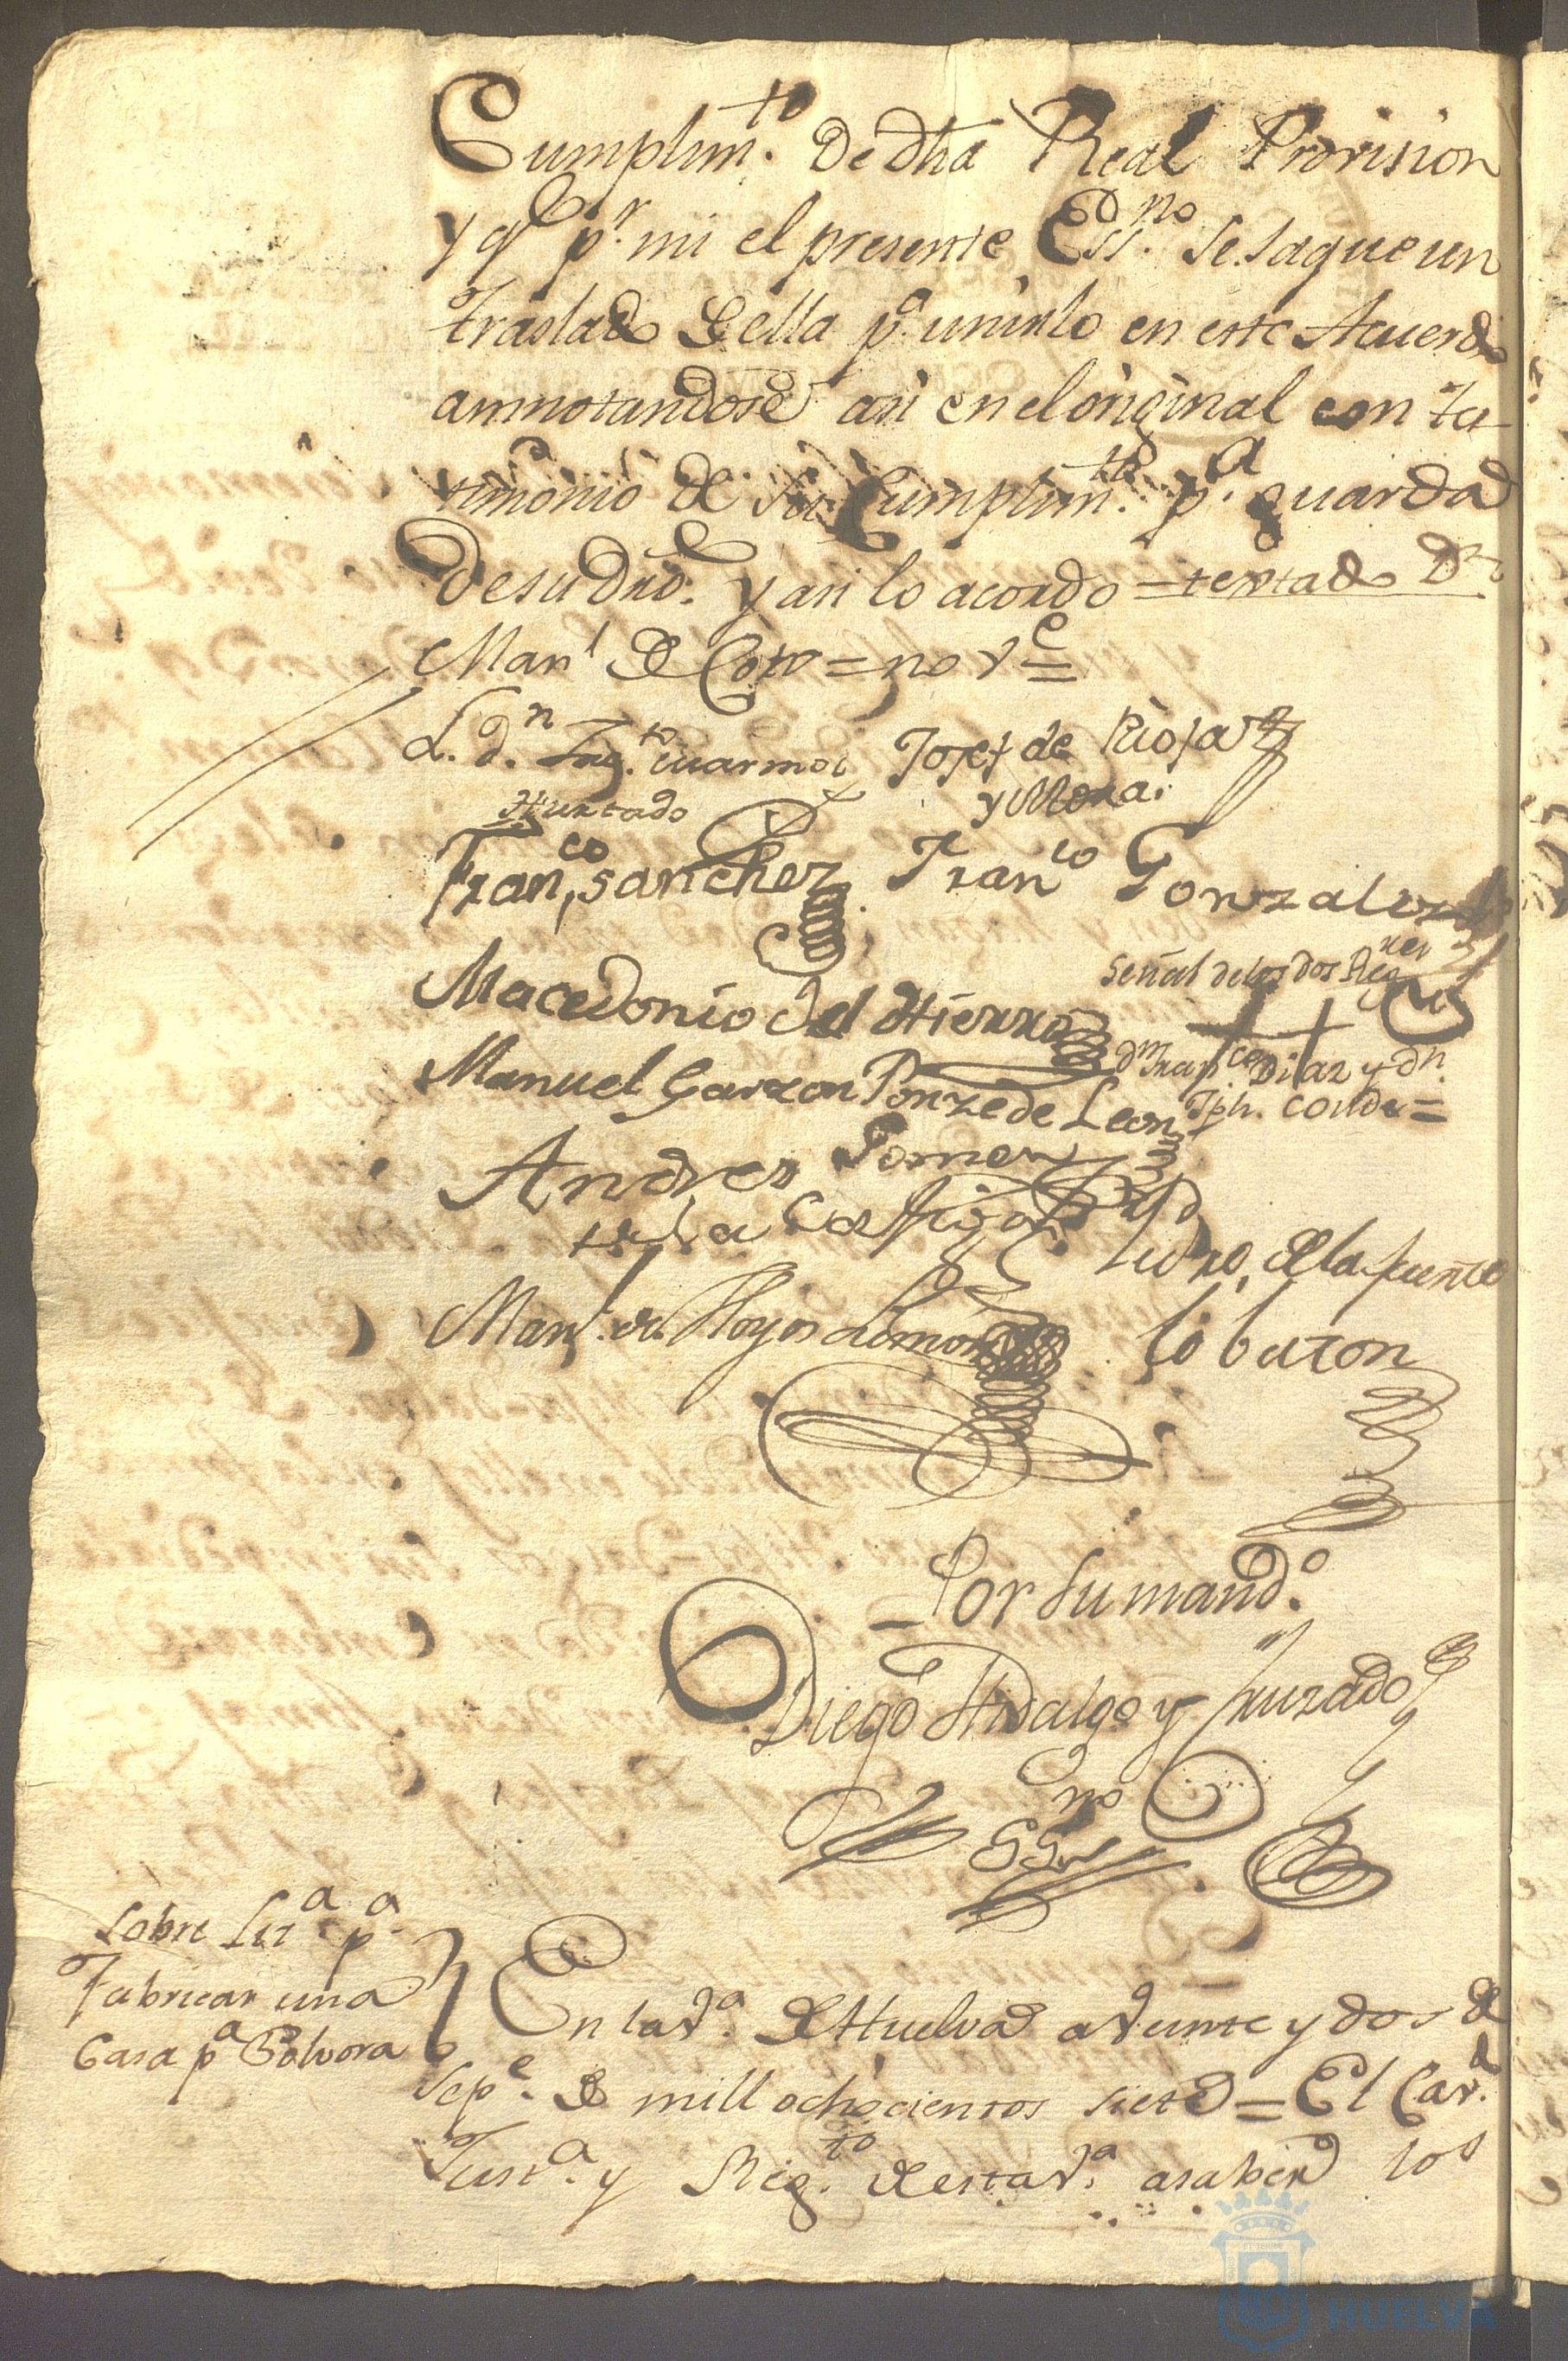 Cumplim.to De dha Real Provision
y q.e p.r mi el presente Ess.no se saque un
traslado de ella p.a unirlo en este Acuerdo
annotandose asi en el original con tes
timonio de su Cumplim.to p.a guarda
de su dro. y asi lo acordo = testado D.n
Man.l de Coto = no v.e =
L. d.n
Hurtado
Josef de Rioja
y Mora.
Fran.co Sanchez Fran.co Gonzalez
Señal de los dos Reg.res
Macedonio del Hierro
d.n Fran.co Diaz y d.n
Jph. Conde =
Manuel Garzon Ponze de Leon
Andres Gomez
de la Cortijo
Pedro de la fuente
lobaton
Man.l de Hoyos Limon
Por su mand.o
Diego Hidalgo y Jurado
Ess.no
Sobre Liz.a p.a
Fabricar una
Casa p.a Polvora
En la v.a de Huelva a veinte y dos de
Sep.e de mill ochocientos siete = El Cav.do
Just.a y Reg.to de esta v.a a saber los
HUELVA